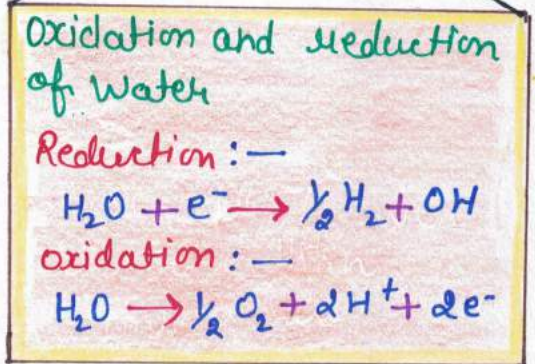 Oxidation and reduction
of Water
Reduction : —
H₂O + e⁻ → ½ H₂ + OH
oxidation : —
H₂O → ½ O₂ + 2H⁺ + 2e⁻